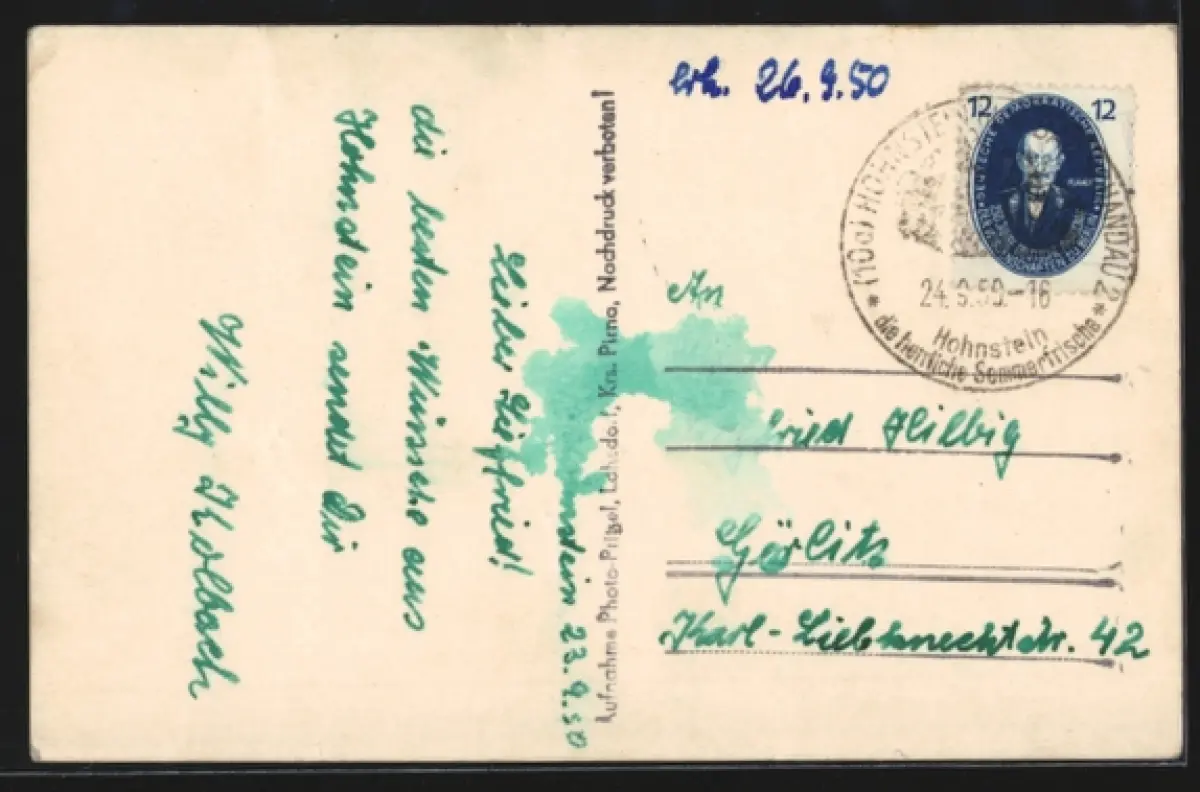 erh. 26.9.50
12 12
DEUTSCHE DEMOKRATISCHE REPUBLIK
(10a) HOHNSTEIN ANDAU 2
24.9.50.-16
Hohnstein
die herrliche Sommerfrische
An
fried Hilbig
Görlitz
Karl-Liebknechtstr. 42
Aufnahme Photo-Pilzel, Lohsdorf, Krs. Pirna, Nachdruck verboten!
nstein 23.9.50
Lieber Siegfried!
die besten Wünsche aus
Hohnstein sendet Dir
Willy Kolbach